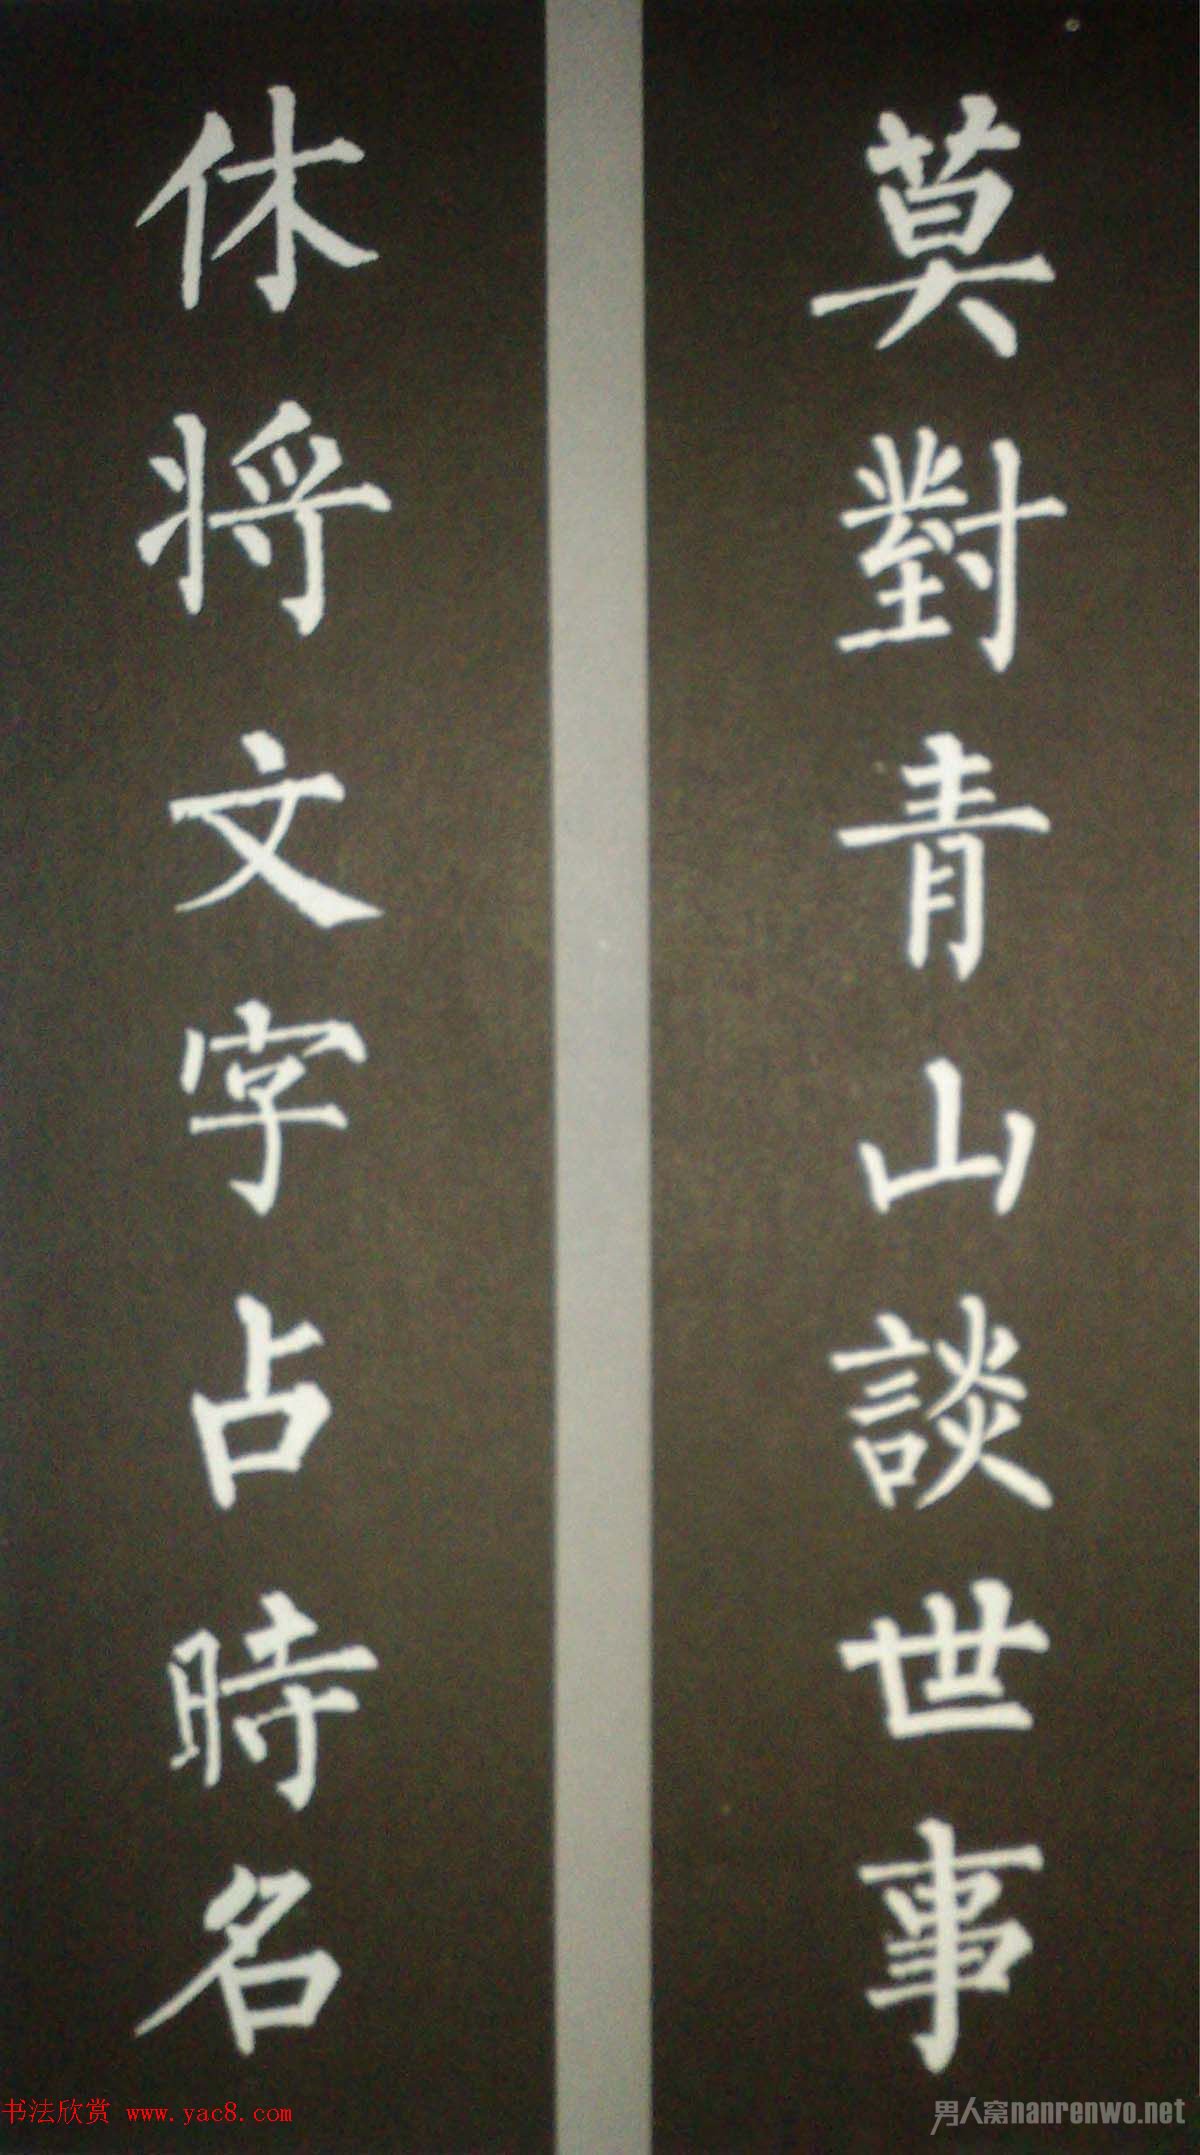 莫對青山談世事
休將文字占時名
书法欣赏 www.yac8.com
男人窝nanrenwo.net